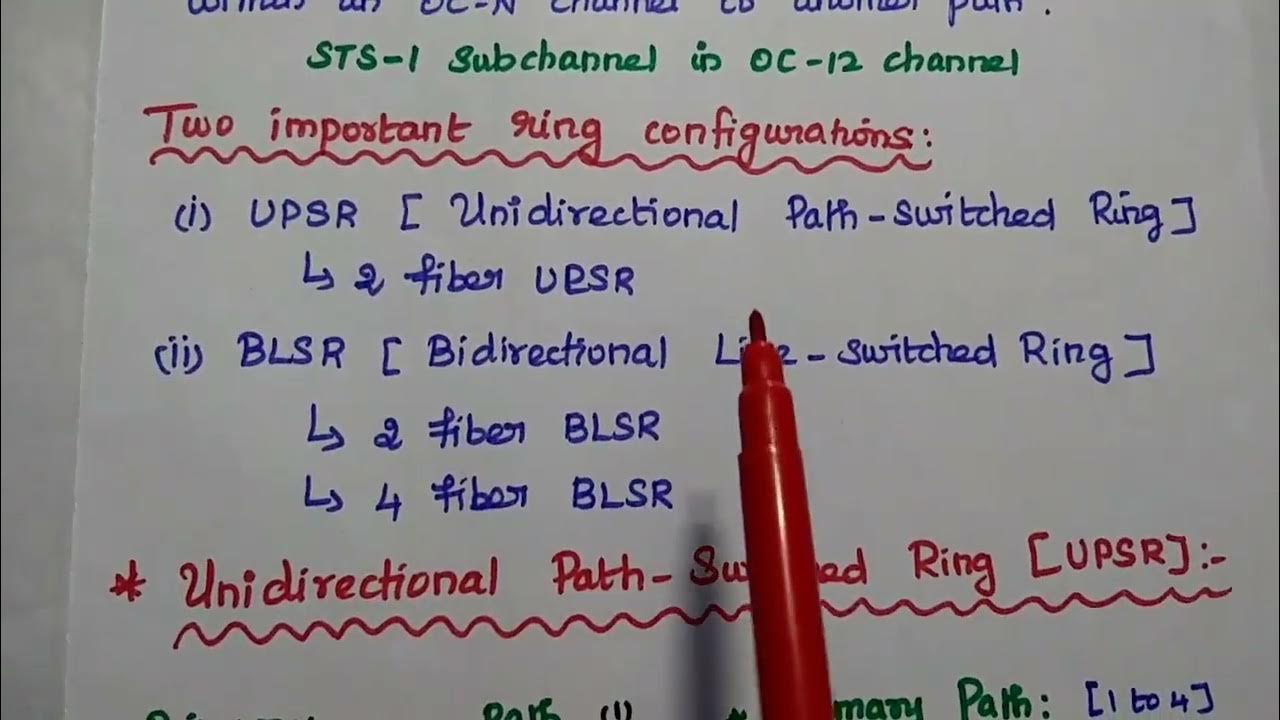 an OC-N channel to another path.
STS-1 Subchannel in OC-12 channel
Two important ring configurations:
(i) UPSR [ Unidirectional Path-switched Ring]
↳ 2 fiber UPSR
(ii) BLSR [ Bidirectional Line-switched Ring ]
↳ 2 fiber BLSR
↳ 4 fiber BLSR
* Unidirectional Path-Switched Ring [UPSR]:-
Path (1) Path: [1 to 4]